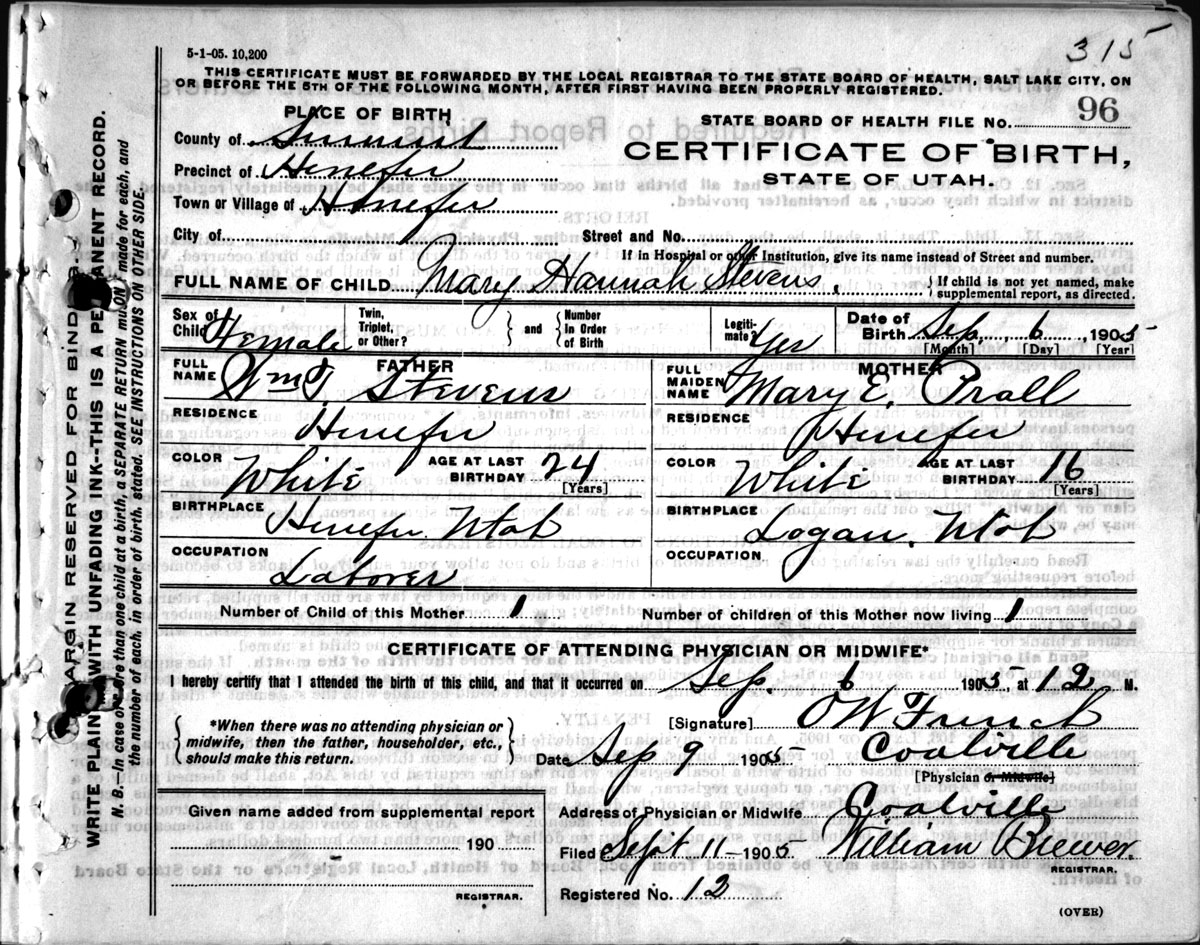 315
5-1-05. 10,200
THIS CERTIFICATE MUST BE FORWARDED BY THE LOCAL REGISTRAR TO THE STATE BOARD OF HEALTH, SALT LAKE CITY, ON
OR BEFORE THE 5TH OF THE FOLLOWING MONTH, AFTER FIRST HAVING BEEN PROPERLY REGISTERED.
PLACE OF BIRTH
STATE BOARD OF HEALTH FILE NO. 96
County of Summit
CERTIFICATE OF BIRTH,
Precinct of Henefer
STATE OF UTAH.
Town or Village of Henefer
City of Street and No.
If in Hospital or other Institution, give its name instead of Street and number.
FULL NAME OF CHILD Mary Hannah Stevens. } If child is not yet named, make
supplemental report, as directed.
Sex of Child Female Twin, Triplet, or Other? } and { Number In Order of Birth Legiti-mate? Yes Date of Birth Sep. 6 1905
[Month] [Day] [Year]
FATHER MOTHER
FULL NAME Wm J. Stevens FULL MAIDEN NAME Mary E. Prall
RESIDENCE Henefer RESIDENCE Henefer
COLOR White AGE AT LAST BIRTHDAY 24 [Years] COLOR White AGE AT LAST BIRTHDAY 16 [Years]
BIRTHPLACE Henefer Utah BIRTHPLACE Logan. Utah
OCCUPATION Laborer OCCUPATION
Number of Child of this Mother 1 Number of children of this Mother now living 1
CERTIFICATE OF ATTENDING PHYSICIAN OR MIDWIFE*
I hereby certify that I attended the birth of this child, and that it occurred on Sep. 6 1905 at 12 M.
{ *When there was no attending physician or
midwife, then the father, householder, etc.,
should make this return. }
[Signature] O W French
Date Sep 9 1905 Coalville
[Physician or Midwife]
Given name added from supplemental report
190
REGISTRAR.
Address of Physician or Midwife Coalville
Filed Sept 11- 1905 William Brewer.
REGISTRAR.
Registered No. 12
(OVER)
MARGIN RESERVED FOR BINDING
WRITE PLAINLY WITH UNFADING INK--THIS IS A PERMANENT RECORD.
N. B.--In case of more than one child at a birth, a SEPARATE RETURN must be made for each, and
the number of each, in order of birth, stated. SEE INSTRUCTIONS ON OTHER SIDE.